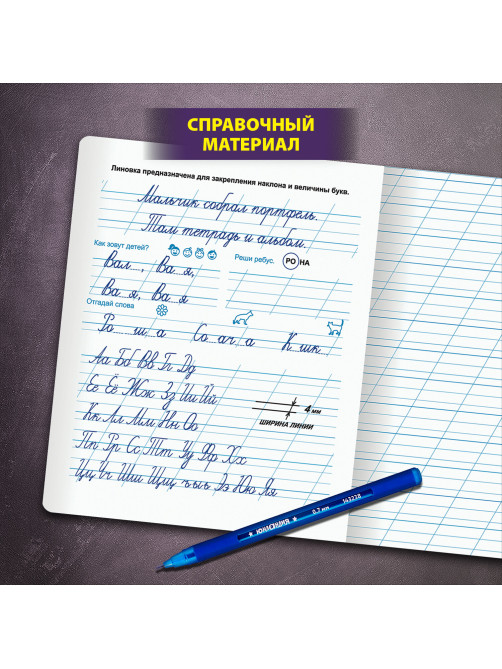 СПРАВОЧНЫЙ
МАТЕРИАЛ
Линовка предназначена для закрепления наклона и величины букв.
Мальчик собрал портфель.
Там тетрадь и альбом.
Как зовут детей?
Реши ребус. РО НА
Вал..., Ва..я,
Ва..я, Ва..я
Отгадай слова
Ро...ш..а Со..ач..а К..шк..
Аа Бб Вв Гг Дд
Ее Её Жж Зз Ии Йй
4 мм
ШИРИНА ЛИНИИ
Кк Лл Мм Нн Оо
Пп Рр Сс Тт Уу Фф Хх
Цц Чч Шш Щщ ъ ы ь Ээ Юю Яя
ЮНЛАНДИЯ 0,7 мм 143228